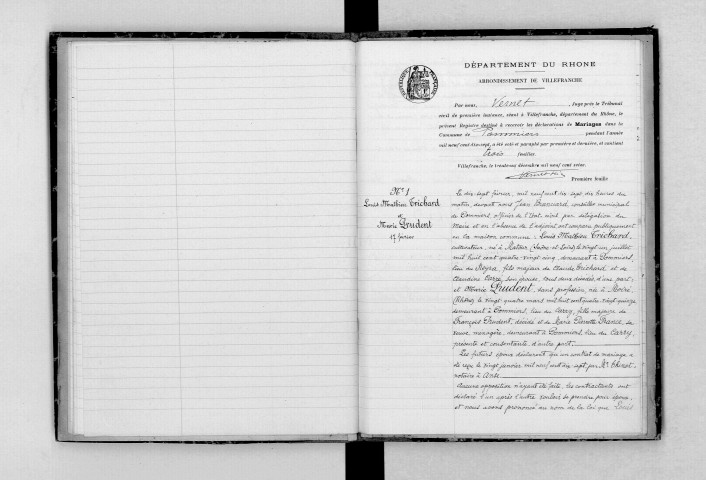 DÉPARTEMENT DU RHONE
ARRONDISSEMENT DE VILLEFRANCHE
Par nous, Vernet, Juge près le Tribunal
civil de première instance, séant à Villefranche, département du Rhône, le
présent Registre destiné à recevoir les déclarations de Mariages dans la
Commune de Pommiers pendant l'année
mil neuf cent dix-sept, a été coté et paraphé par première et dernière, et contient
trois feuilles.
Villefranche, le trente-un décembre mil neuf cent seize.
Première feuille
N° 1
Louis Mathieu Trichard
et
Marie Prudent
17 février
Le dix-sept février, mil neuf cent dix sept dix heures du
matin, devant nous Jean Branciard, conseiller municipal
de Pommiers, officier de l'Etat civil par délégation du
Maire et en l'absence de l'adjoint ont comparu publiquement
en la maison commune : Louis Mathieu Trichard,
cultivateur, né à Matour, (Saône et Loire) le vingt un juillet
mil huit cent quatre-vingt cinq, demeurant à Pommiers,
lieu de fils majeur de Claude Trichard et de
Claudine son épouse, tous deux décédés, d'une part;
et Marie Prudent, sans profession, née à Moiré,
(Rhône) le vingt quatre mars mil huit cent quatre vingt quinze
demeurant à Pommiers, lieu du Carry, fille majeure de
François Prudent, décédé et de Marie Pierrette France, sa
veuve, ménagère, demeurant à Pommiers lieu du Carry,
présente et consentante, d'autre part.
Les futurs époux déclarent qu'un contrat de mariage a
été reçu le vingt janvier mil neuf cent dix sept par Me
notaire à Anse.
Aucune opposition n'ayant été faite, les contractants ont
déclaré l'un après l'autre vouloir se prendre pour époux,
et nous avons prononcé au nom de la loi que Louis